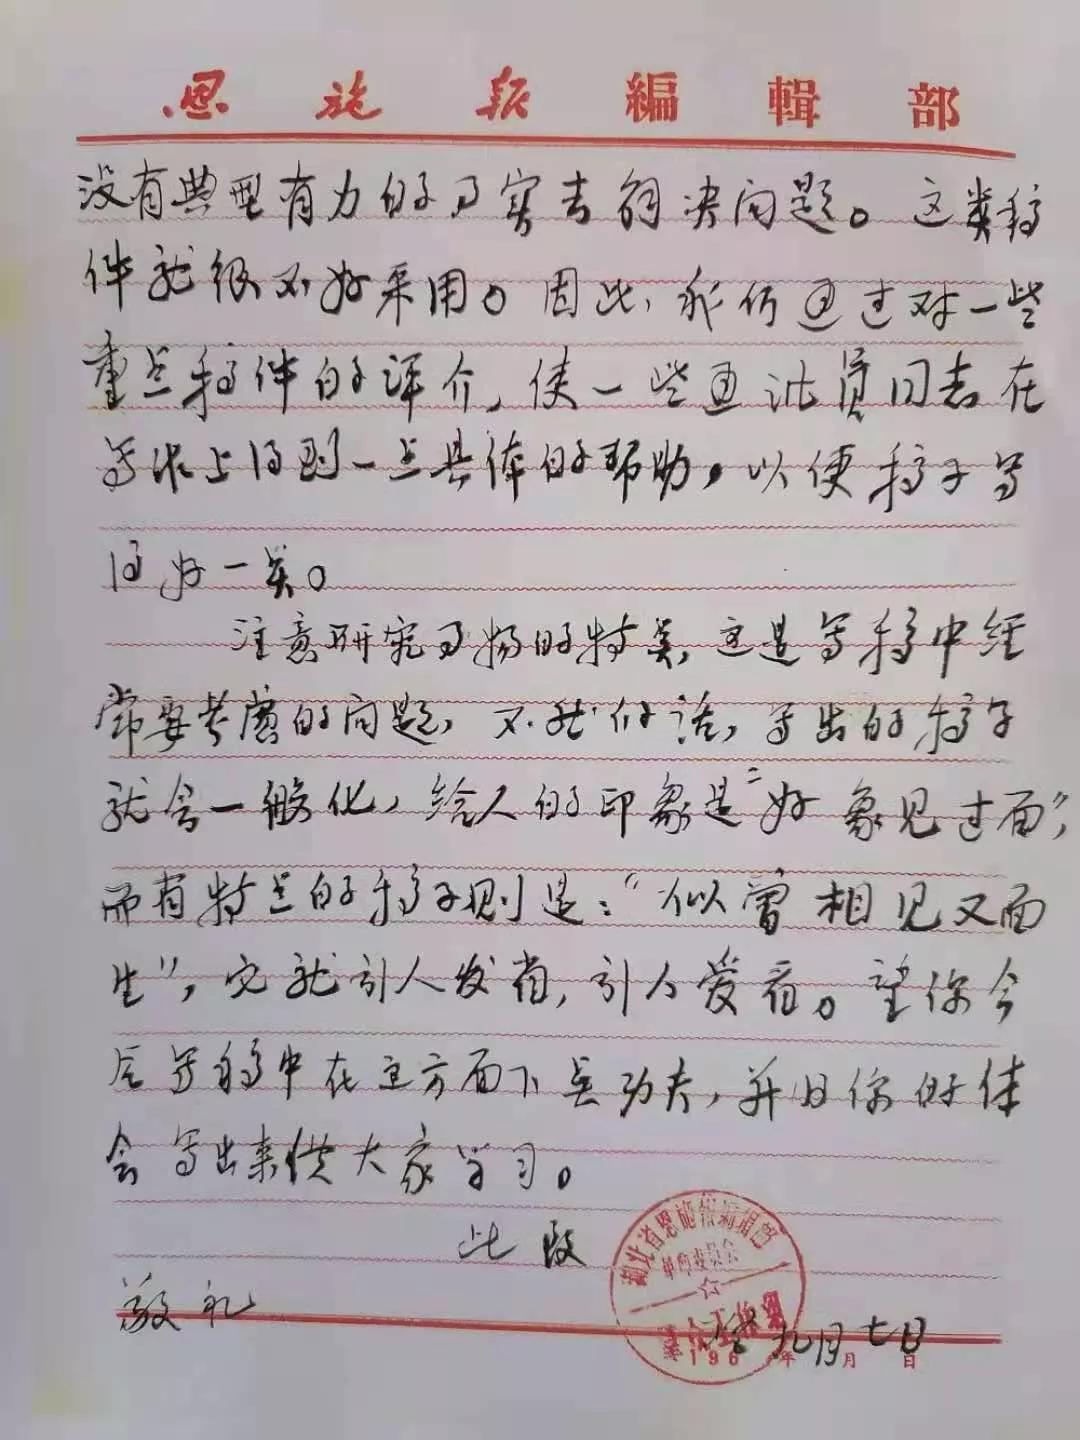 恩施报編輯部
没有典型有力的事实去解决问题。这类稿
件就很不好采用。因此，我们通过对一些
重点稿件的评介，使一些通讯员同志在
写作上得到一点具体的帮助，以便稿子写
得好一点。
注意研究事物的特点，这是写稿中经
常要考虑的问题，不然的话，写出的稿子
就会一般化，给人的印象是“好象见过面”，
而有特点的稿子则是：“似曾相见又面
生”，它就引人发省，引人爱看。望你今
后写稿中在这方面下点功夫，并把你的体
会写出来供大家学习。
此致
敬礼
湖北省恩施报编辑部
革命委员会
196 年九月七日